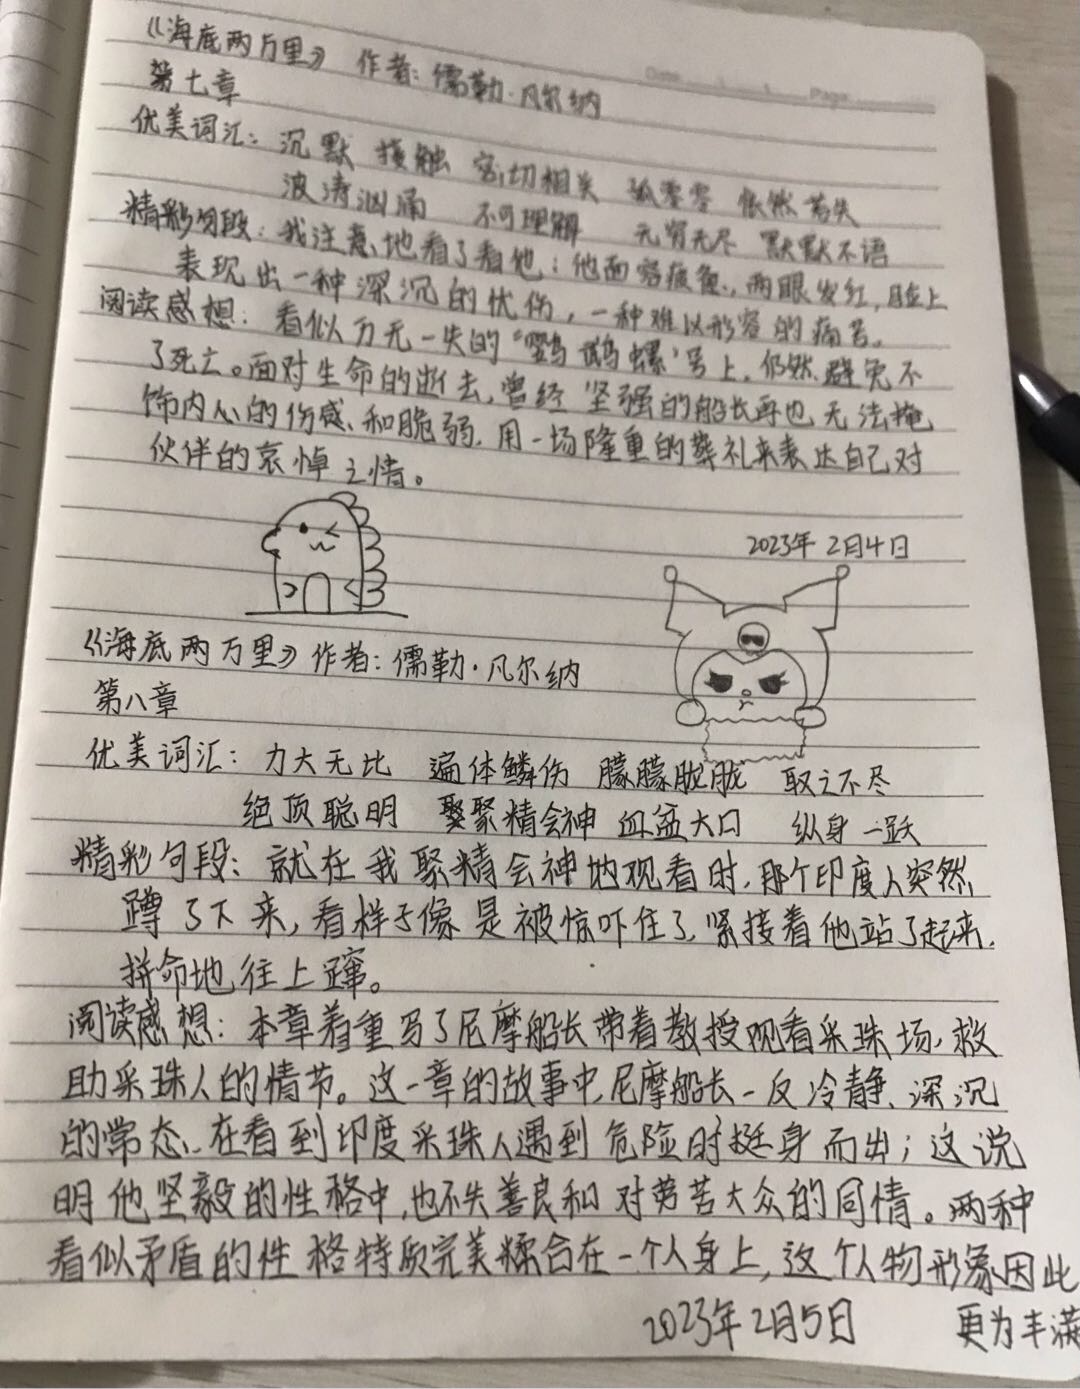 《海底两万里》 作者：儒勒·凡尔纳
Date Page
第七章
优美词汇：沉默 接触 密切相关 孤零零 怅然若失
波涛汹涌 不可理解 无穷无尽 默默不语
精彩句段：我注意地看了看他：他面容疲惫，两眼发红，脸上
表现出一种深沉的忧伤，一种难以形容的痛苦。
阅读感想：看似万无一失的“鹦鹉螺”号上，仍然避免不
了死亡。面对生命的逝去，曾经坚强的船长再也无法掩
饰内心的伤感和脆弱，用一场隆重的葬礼来表达自己对
伙伴的哀悼之情。
2023年2月4日
《海底两万里》作者：儒勒·凡尔纳
第八章
优美词汇：力大无比 遍体鳞伤 朦朦胧胧 取之不尽
绝顶聪明 聚精会神 血盆大口 纵身一跃
精彩句段：就在我聚精会神地观看时，那个印度人突然
蹲了下来，看样子像是被惊吓住了，紧接着他站了起来，
拼命地往上蹿。
阅读感想：本章着重写了尼摩船长带着教授观看采珠场，救
助采珠人的情节。这一章的故事中，尼摩船长一反冷静、深沉
的常态，在看到印度采珠人遇到危险时挺身而出；这说
明他坚毅的性格中，也不失善良和对劳苦大众的同情。两种
看似矛盾的性格特质完美糅合在一个人身上，这个人物形象因此
更为丰满
2023年2月5日